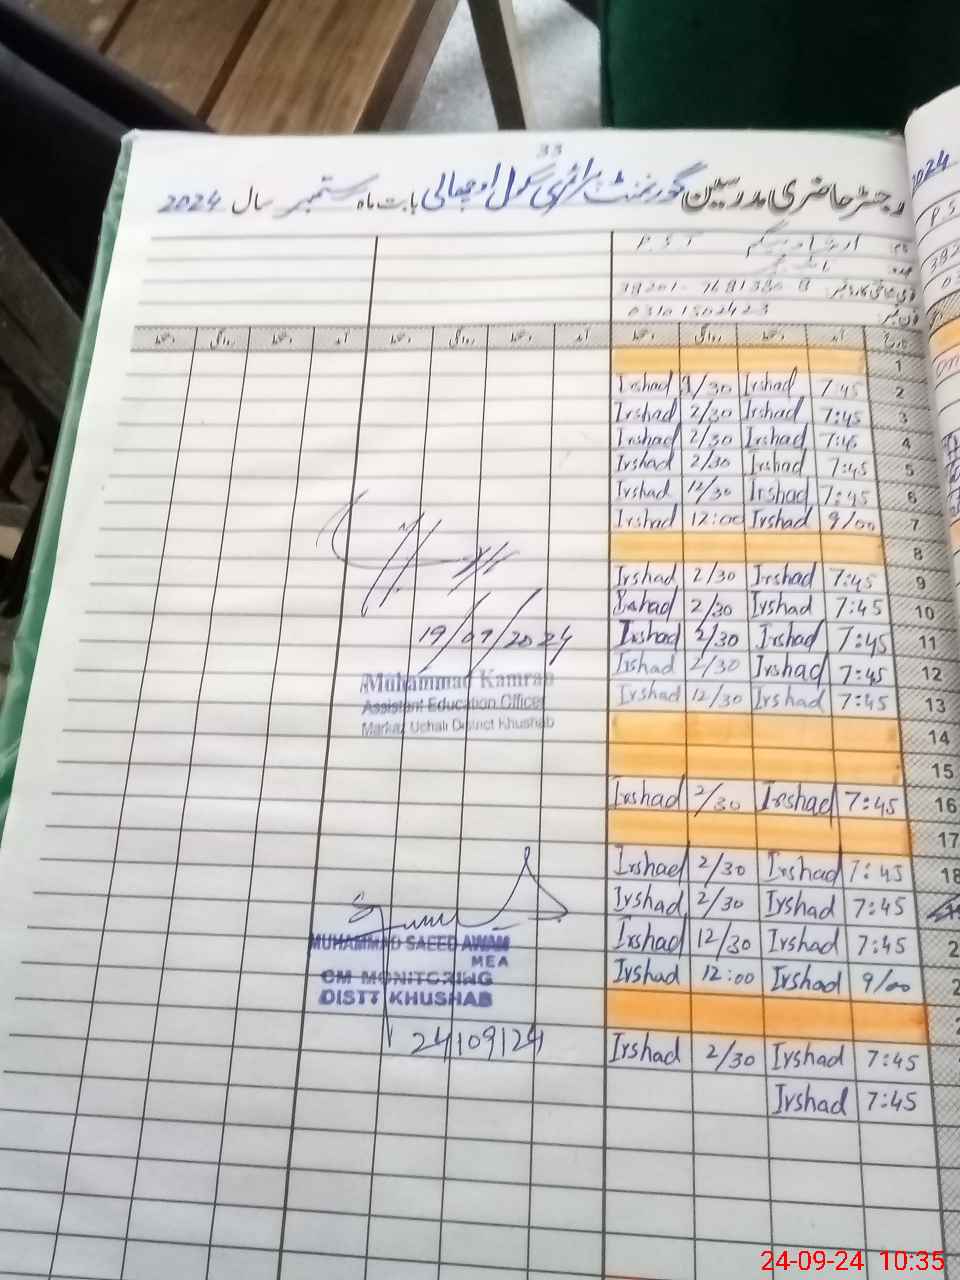 33
رجسٹر حاضری مدرسین گورنمنٹ پرائمری سکول اوچھالی بابت ماہ ستمبر سال 2024
2024
نام P.S.T
عہدہ
قومی شناختی کارڈ نمبر
فون نمبر 03101502423
تاریخ آمد دستخط روانگی دستخط آمد دستخط روانگی دستخط آمد دستخط روانگی دستخط
1
2 7:45 Irshad /30 Irshad
3 7:45 Irshad 2/30 Irshad
4 7:45 Irshad 2/30 Irshad
5 7:45 Irshad 2/30 Irshad
6 7:45 Irshad 12/30 Irshad
7 9/00 Irshad 12:00 Irshad
8
9 7:45 Irshad 2/30 Irshad
10 7:45 Irshad 2/30 Irshad
11 7:45 Irshad 2/30 Irshad
12 7:45 Irshad 2/30 Irshad
13 7:45 Irshad 12/30 Irshad
14
15
16 7:45 Irshad 2/30 Irshad
17
18 7:45 Irshad 2/30 Irshad
19 7:45 Irshad 2/30 Irshad
7:45 Irshad 12/30 Irshad
9/00 Irshad 12:00 Irshad
7:45 Irshad 2/30 Irshad
7:45 Irshad
19/09/2024
Muhammad Kamran
Assistant Education Officer
Markaz Uchali District Khushab
MUHAMMAD SAEED AWAN
MEA
CM MONITORING
DISTT KHUSHAB
24/09/24
24-09-24 10:35